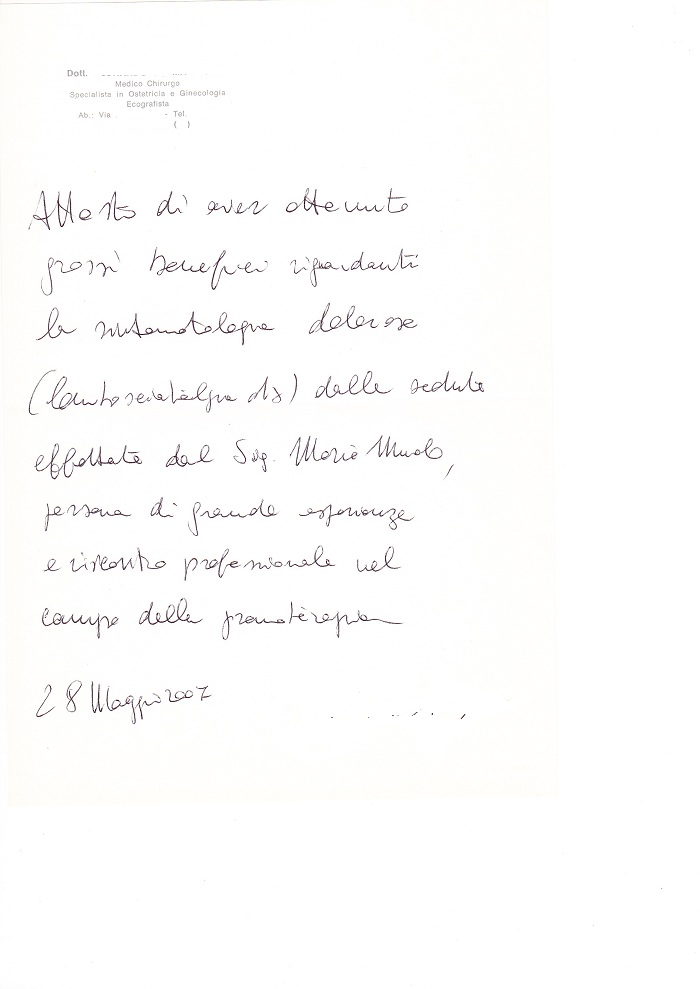 Dott.
Medico Chirurgo
Specialista in Ostetricia e Ginecologia
Ecografista
Ab.: Via - Tel.
( )
Attesto di aver ottenuto
grossi benefici riguardanti
la sintomatologia dolorosa
(lombosciatalgia dx) dalle sedute
effettuate dal Sig. Mario
persona di grande esperienza
e riscontro professionale nel
campo della pranoterapia
28 Maggio 2007